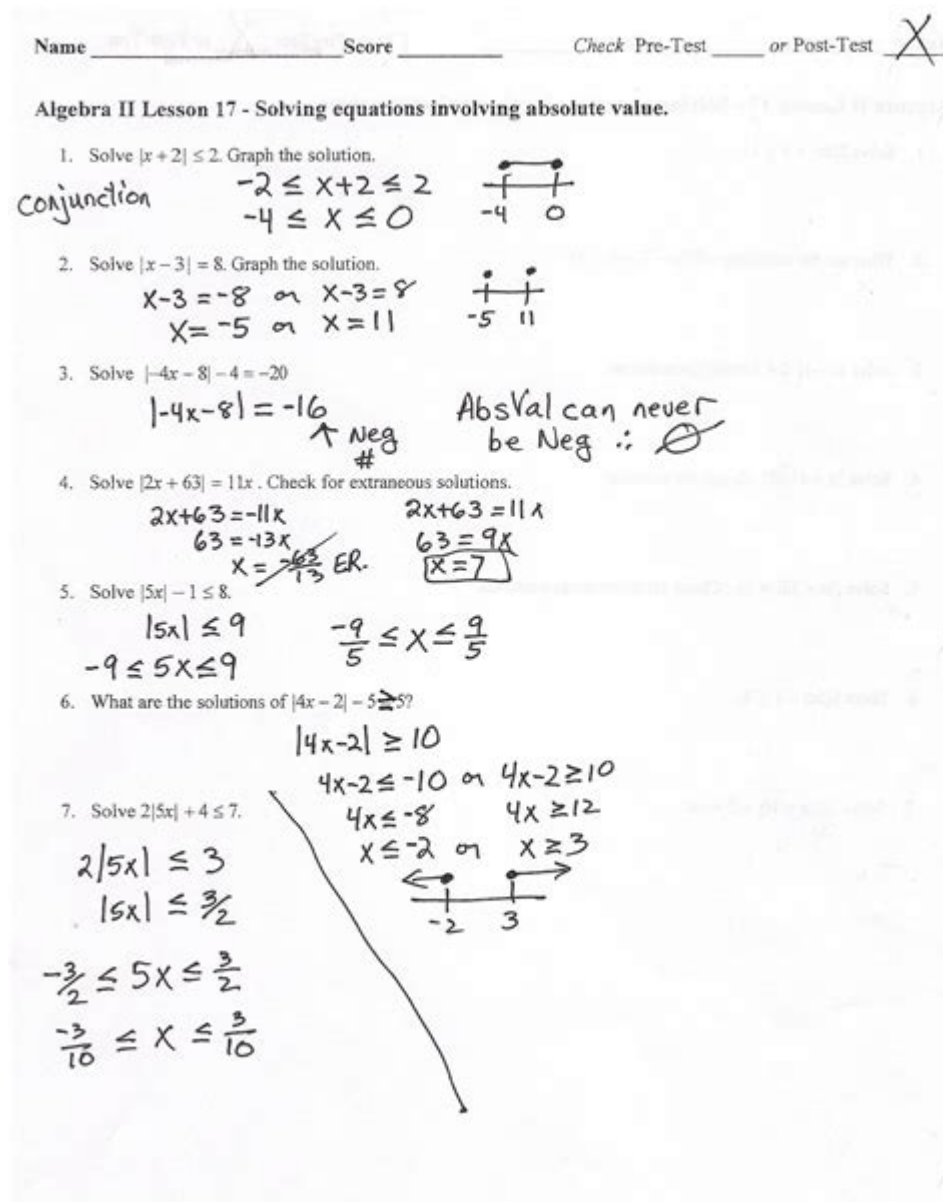 Name ____________ Score ____________ Check Pre-Test _____ or Post-Test X
Algebra II Lesson 17 - Solving equations involving absolute value.
1. Solve |x + 2| ≤ 2. Graph the solution.
conjunction
-2 ≤ x+2 ≤ 2
-4 ≤ x ≤ 0
-4 0
2. Solve |x − 3| = 8. Graph the solution.
x-3 = -8 or x-3 = 8
x = -5 or x = 11
-5 11
3. Solve |−4x − 8| − 4 = −20
|-4x-8| = -16
↑ Neg
#
AbsVal can never
be Neg ∴ ∅
4. Solve |2x + 63| = 11x . Check for extraneous solutions.
2x+63 = -11x
63 = -13x
x = -63/13 ER.
2x+63 = 11x
63 = 9x
x = 7
5. Solve |5x| − 1 ≤ 8.
|5x| ≤ 9
-9 ≤ 5x ≤ 9
-9/5 ≤ x ≤ 9/5
6. What are the solutions of |4x − 2| − 5 ≥ 5?
|4x-2| ≥ 10
4x-2 ≤ -10 or 4x-2 ≥ 10
4x ≤ -8 4x ≥ 12
x ≤ -2 or x ≥ 3
-2 3
7. Solve 2|5x| + 4 ≤ 7.
2|5x| ≤ 3
|5x| ≤ 3/2
-3/2 ≤ 5x ≤ 3/2
-3/10 ≤ x ≤ 3/10